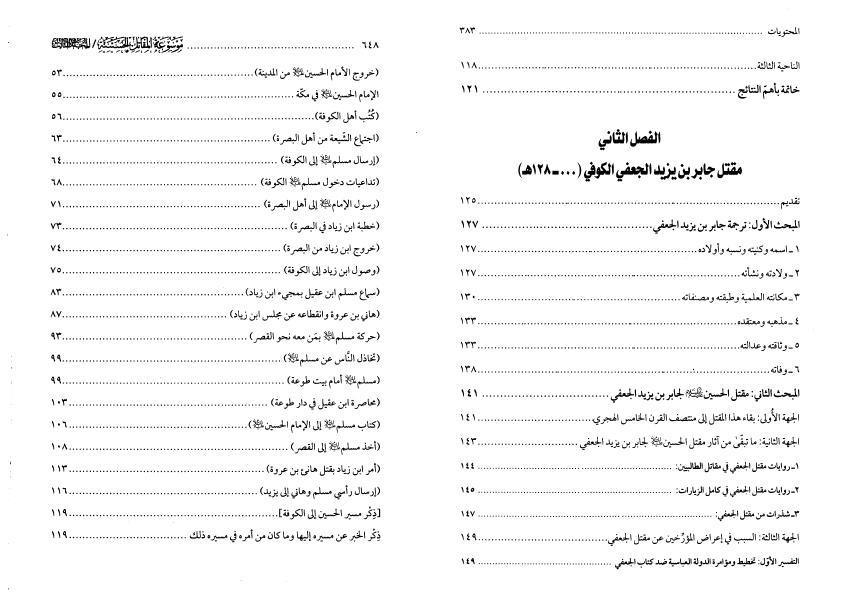 المحتويات ........ ٣٨٣
الناحية الثالثة ........ ١١٨
خاتمة بأهمّ النتائج ........ ١٢١
الفصل الثاني
مقتل جابر بن يزيد الجعفي الكوفي (... ـ ١٢٨هـ)
تقديم ........ ١٢٥
المبحث الأول: ترجمة جابر بن يزيد الجعفي ........ ١٢٧
١ ـ اسمه وكنيته ونسبه وأولاده ........ ١٢٧
٢ ـ ولادته ونشأته ........ ١٢٧
٣ ـ مكانته العلمية وطبقته ومصنفاته ........ ١٣٠
٤ ـ مذهبه ومعتقده ........ ١٣٣
٥ ـ وثاقته وعدالته ........ ١٣٣
٦ ـ وفاته ........ ١٣٨
المبحث الثاني: مقتل الحسين لجابر بن يزيد الجعفي ........ ١٤١
الجهة الأُولى: بقاء هذا المقتل إلى منتصف القرن الخامس الهجري ........ ١٤١
الجهة الثانية: ما تبقّىٰ من آثار مقتل الحسين لجابر بن يزيد الجعفي ........ ١٤٣
١ـ روايات مقتل الجعفي في مقاتل الطالبيين: ........ ١٤٤
٢ـ روايات مقتل الجعفي في كامل الزيارات: ........ ١٤٥
٣ـ شذرات من مقتل الجعفي: ........ ١٤٧
الجهة الثالثة: السبب في إعراض المؤرّخين عن مقتل الجعفي ........ ١٤٩
التفسير الأوّل: تخطيط ومؤامرة الدولة العباسية ضد كتاب الجعفي ........ ١٤٩
٦٤٨ ........ موسوعة المقاتل الحسينية /
(خروج الأمام الحسين من المدينة) ........ ٥٣
الإمام الحسين في مكّة ........ ٥٥
(كُتُب أهل الكوفة) ........ ٥٦
(اجتماع الشّيعة من أهل البصرة) ........ ٦٣
(إرسال مسلم إلى الكوفة) ........ ٦٤
(تداعيات دخول مسلم الكوفة) ........ ٦٨
(رسول الإمام إلى أهل البصرة) ........ ٧١
(خطبة ابن زياد في البصرة) ........ ٧٣
(خروج ابن زياد من البصرة) ........ ٧٤
(وصول ابن زياد إلى الكوفة) ........ ٧٥
(سماع مسلم ابن عقيل بمجيء ابن زياد) ........ ٨٣
(هاني بن عروة وانقطاعه عن مجلس ابن زياد) ........ ٨٧
(حركة مسلم بمَن معه نحو القصر) ........ ٩٣
(تخاذل النّاس عن مسلم) ........ ٩٩
(مسلم أمام بيت طوعة) ........ ٩٩
(محاصرة ابن عقيل في دار طوعة) ........ ١٠٣
(كتاب مسلم إلى الإمام الحسين) ........ ١٠٦
(أخذ مسلم إلى القصر) ........ ١٠٨
(أمر ابن زياد بقتل هانئ بن عروة) ........ ١١٣
(إرسال رأسي مسلم وهاني إلى يزيد) ........ ١١٦
[ذِكْر مسير الحسين إلى الكوفة] ........ ١١٩
ذِكْر الخبر عن مسيره إليها وما كان من أمره في مسيره ذلك ........ ١١٩